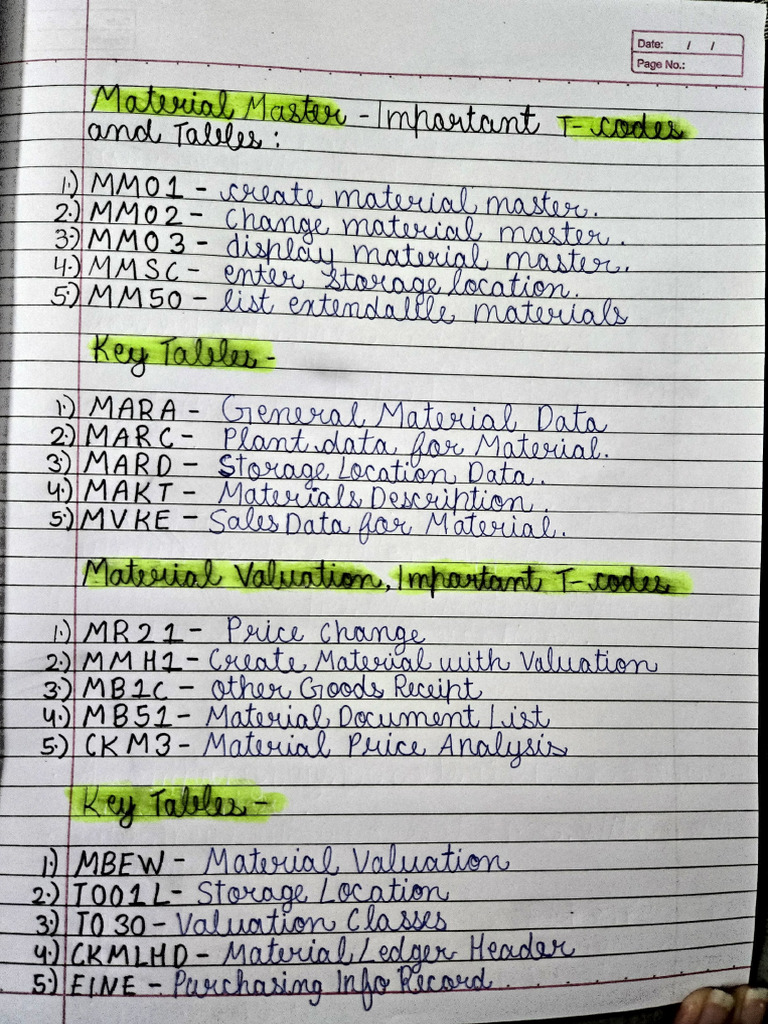 Date: / /
Page No.:
Material Master - Important T-codes
and Tables :
1.) MM01 - create material master.
2.) MM02 - change material master.
3.) MM03 - display material master.
4.) MMSC - enter Storage location.
5.) MM50 - list extendable materials
Key Tables -
1.) MARA - General Material Data
2.) MARC - Plant data for Material.
3.) MARD - Storage Location Data.
4.) MAKT - Materials Description.
5.) MVKE - Sales Data for Material.
Material Valuation, Important T-codes
1.) MR21 - Price Change
2.) MMH1 - Create Material with Valuation
3.) MB1C - Other Goods Receipt
4.) MB51 - Material Document List
5.) CKM3 - Material Price Analysis
Key Tables -
1.) MBEW - Material Valuation
2.) T001L - Storage Location
3.) T030 - Valuation Classes
4.) CKMLHD - Material Ledger Header
5.) EINE - Purchasing Info Record